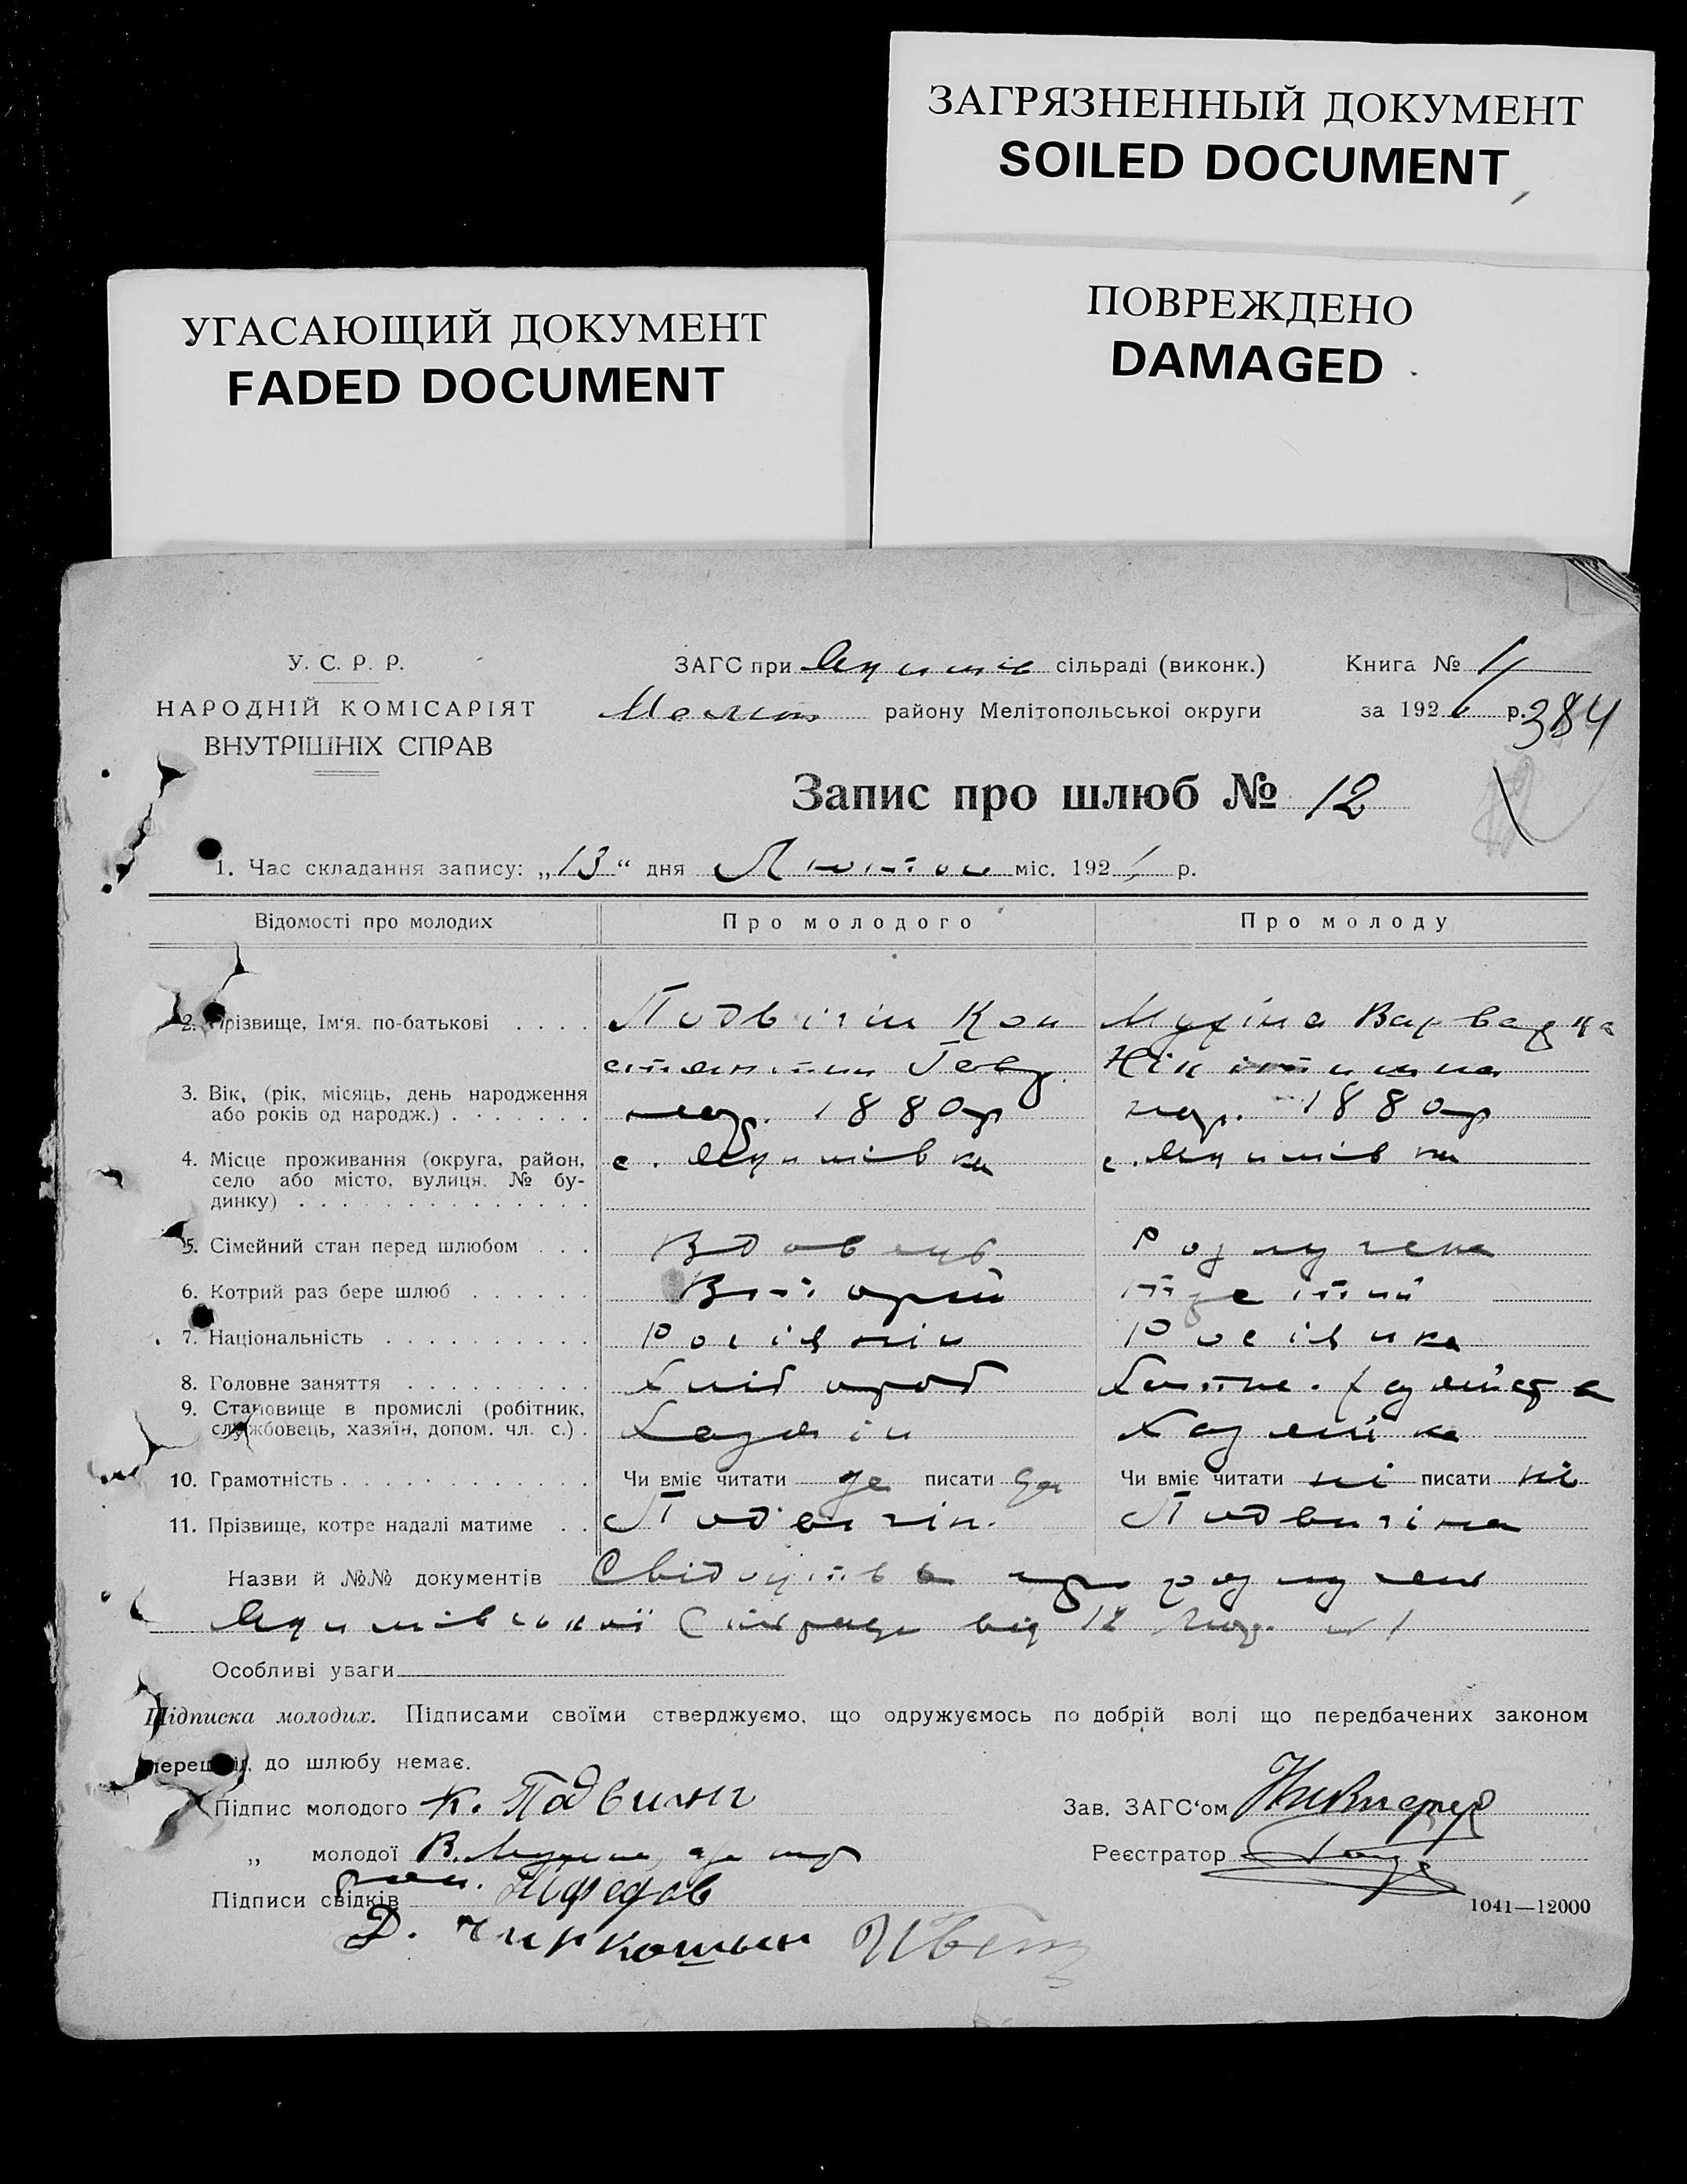 ЗАГРЯЗНЕННЫЙ ДОКУМЕНТ
SOILED DOCUMENT
УГАСАЮЩИЙ ДОКУМЕНТ
FADED DOCUMENT
ПОВРЕЖДЕНО
DAMAGED
У. С. Р. Р.
НАРОДНІЙ КОМІСАРІЯТ
ВНУТРІШНІХ СПРАВ
ЗАГС при сільраді (виконк.)
району Мелітопольської округи
Книга №
за 192 р.
384
Запис про шлюб № 12
1. Час складання запису: „13“ дня міс. 192 р.
Відомості про молодих
Про молодого
Про молоду
2. Прізвище, Ім‘я, по-батькові
Подвігін Кон
стянтин
Мухіна
3. Вік, (рік, місяць, день народження
або років од народж.)
нар. 1880 р
нар. 1880 р
4. Місце проживання (округа, район,
село або місто, вулиця, № бу-
динку)
с. Якимівка
с. Якимівка
5. Сімейний стан перед шлюбом
Вдовець
Розлучена
6. Котрий раз бере шлюб
Вторий
Третий
7. Національність
8. Головне заняття
Хлібороб
9. Становище в промислі (робітник,
службовець, хазяїн, допом. чл. с.)
Хазяін
Хазяйка
10. Грамотність
Чи вміє читати да писати да
Чи вміє читати ні писати ні
11. Прізвище, котре надалі матиме
Подвигін.
Подвигіна
Назви й №№ документів Свідоцтво про розлучен
Якимівської Сільради від 12
Особливі уваги
Підписка молодих. Підписами своїми стверджуємо, що одружуємось по добрій волі що передбачених законом
перешкід до шлюбу немає.
Підпис молодого К. Подвигин
„ молодої В.
Підписи свідків
Д.
Зав. ЗАГС‘ом
Реєстратор
1041—12000